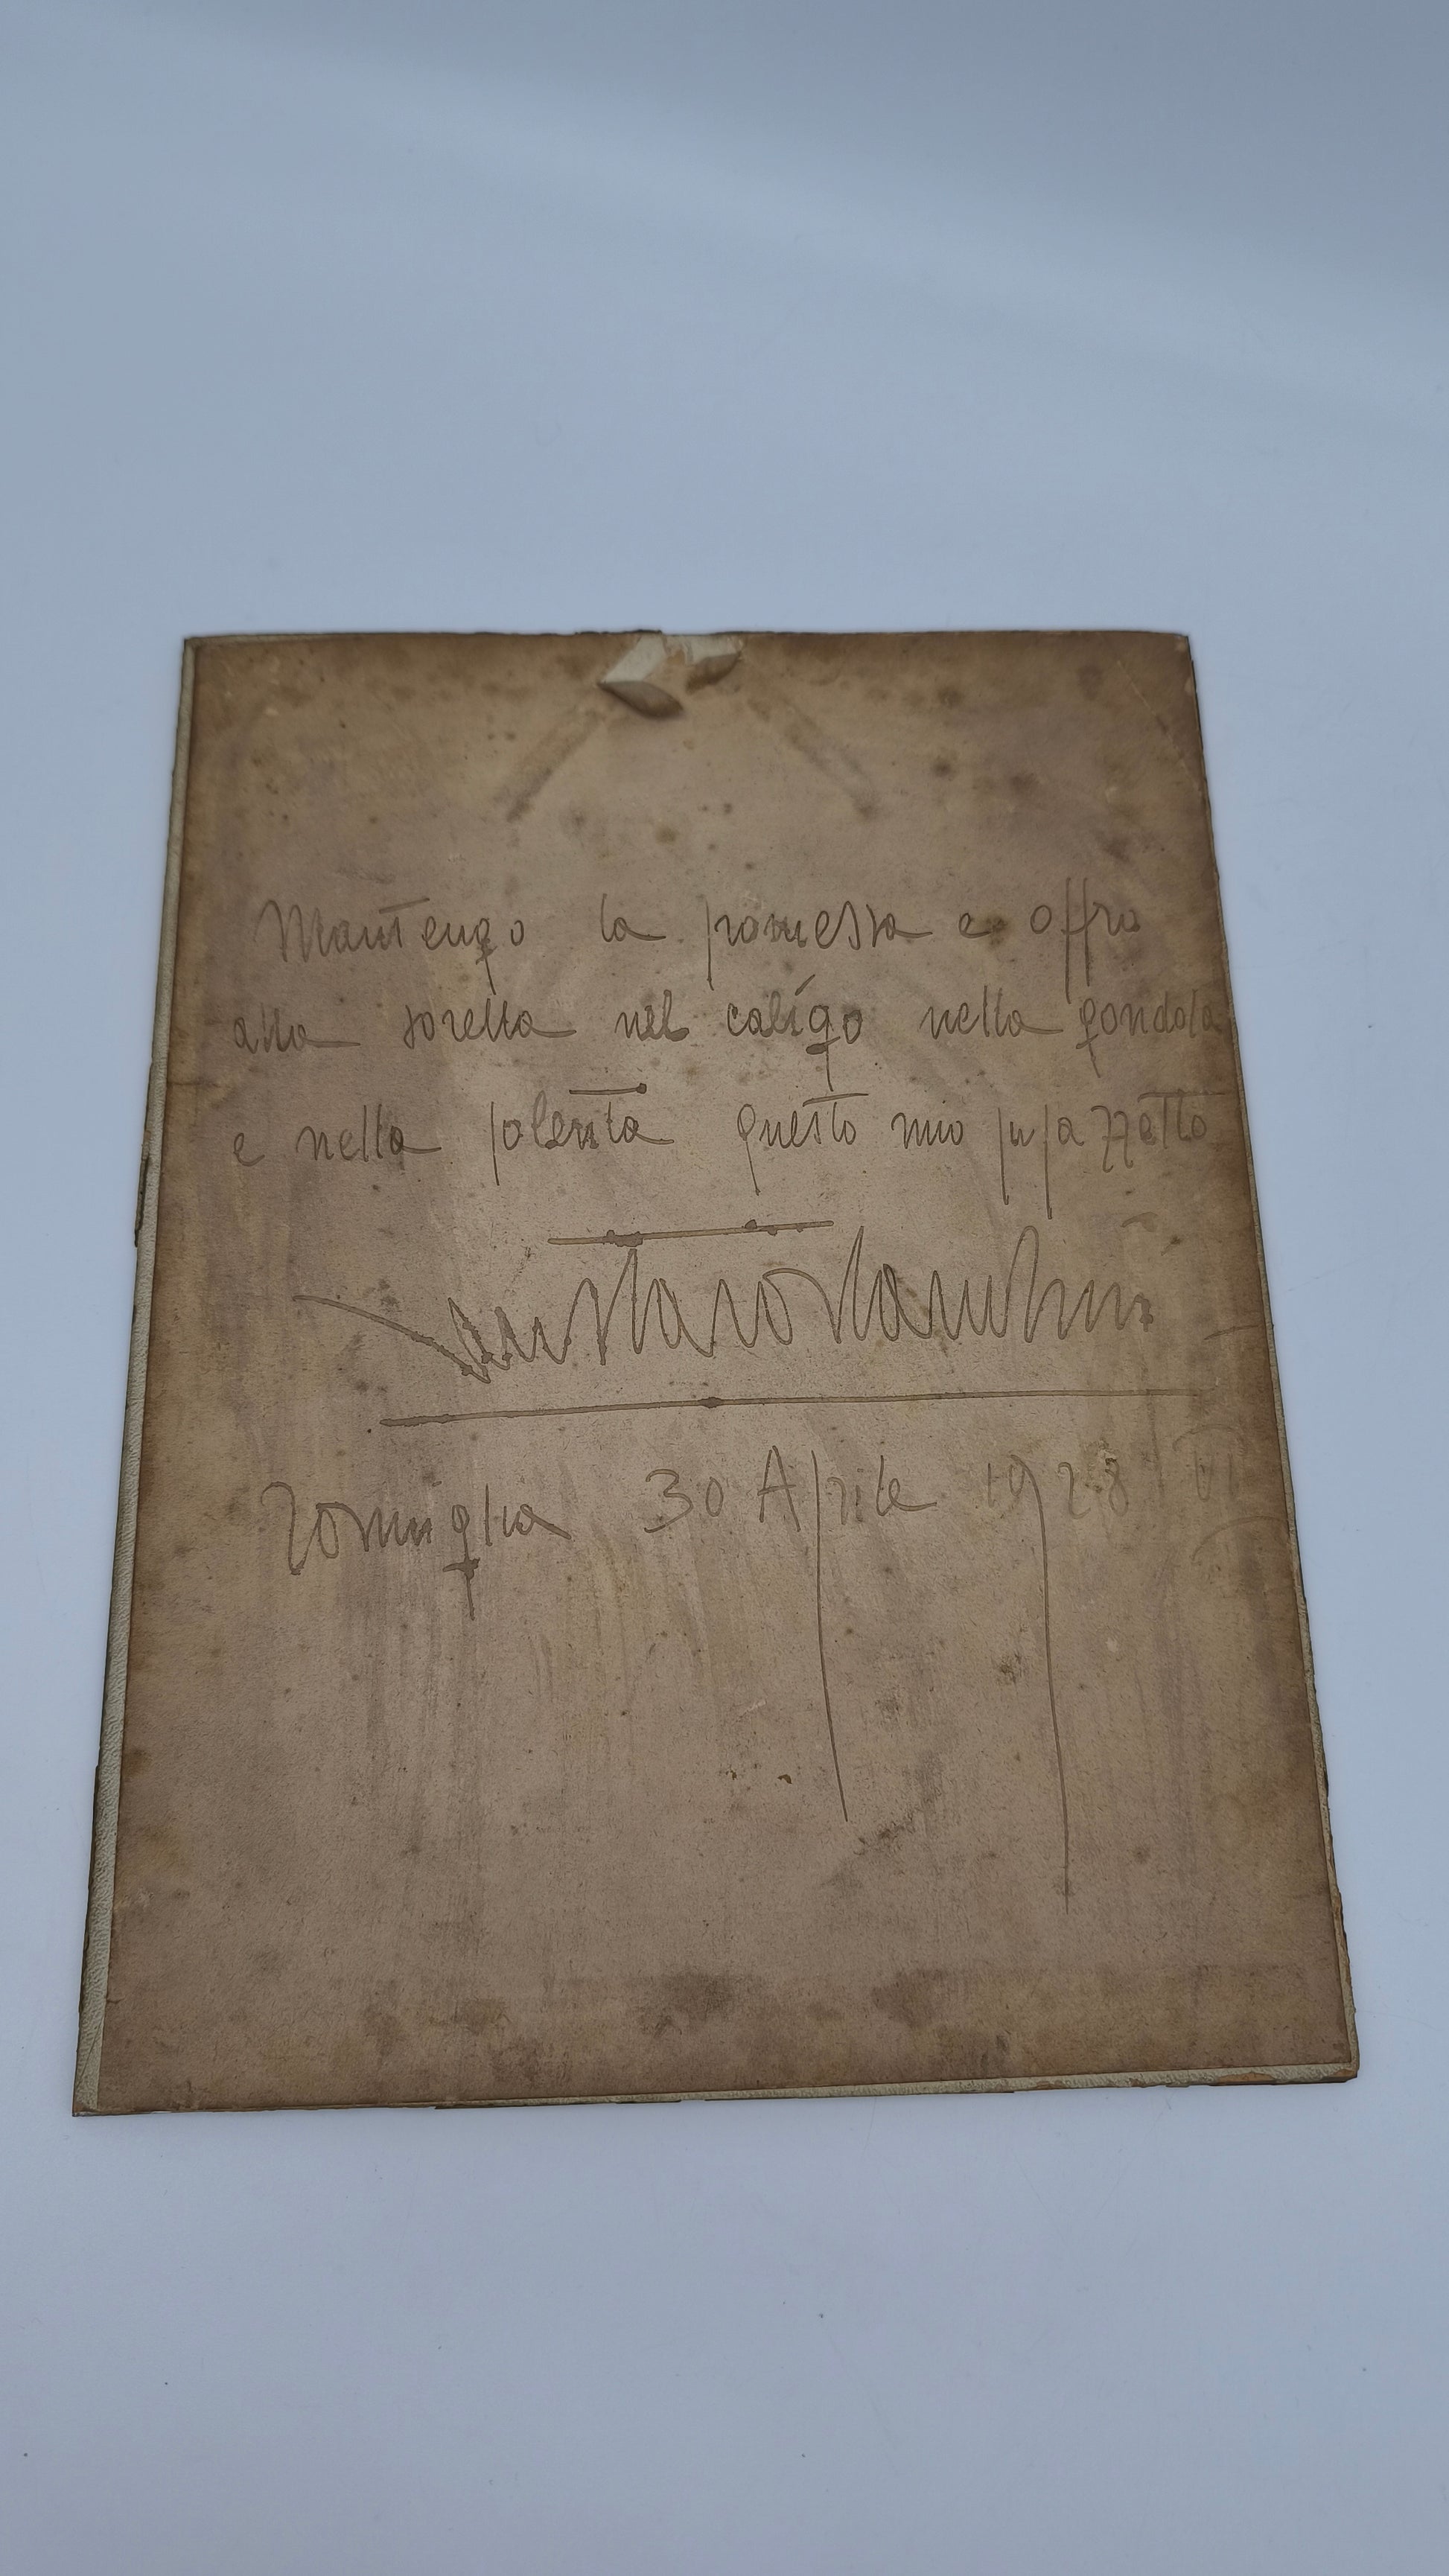 Mantengo la promessa e offro
alla sorella nel calígo nella gondola
e nella polenta questo mio pupazzetto
30 Aprile 1928 VI